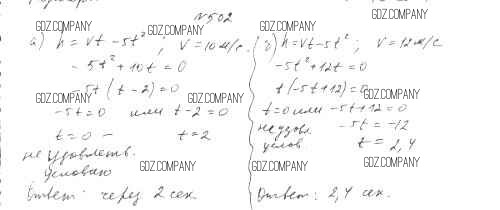 N 502
GDZ.COMPANY GDZ.COMPANY GDZ.COMPANY
а) h = vt - 5t²; V = 10 м/с.
- 5t² + 10t = 0
-5t (t - 2) = 0
GDZ.COMPANY GDZ.COMPANY
-5t = 0 или t - 2 = 0
t = 0 - t = 2
не удовлетв.
условию
GDZ.COMPANY
Ответ: через 2 сек.
б) h = vt - 5t²; V = 12 м/с
-5t² + 12t = 0
GDZ.COMPANY
t(-5t + 12) = 0
GDZ.COMPANY
t = 0 или -5t + 12 = 0
не удовл. -5t = -12
услов t = 2,4
GDZ.COMPANY GDZ.COMPANY
Ответ: 2,4 сек.